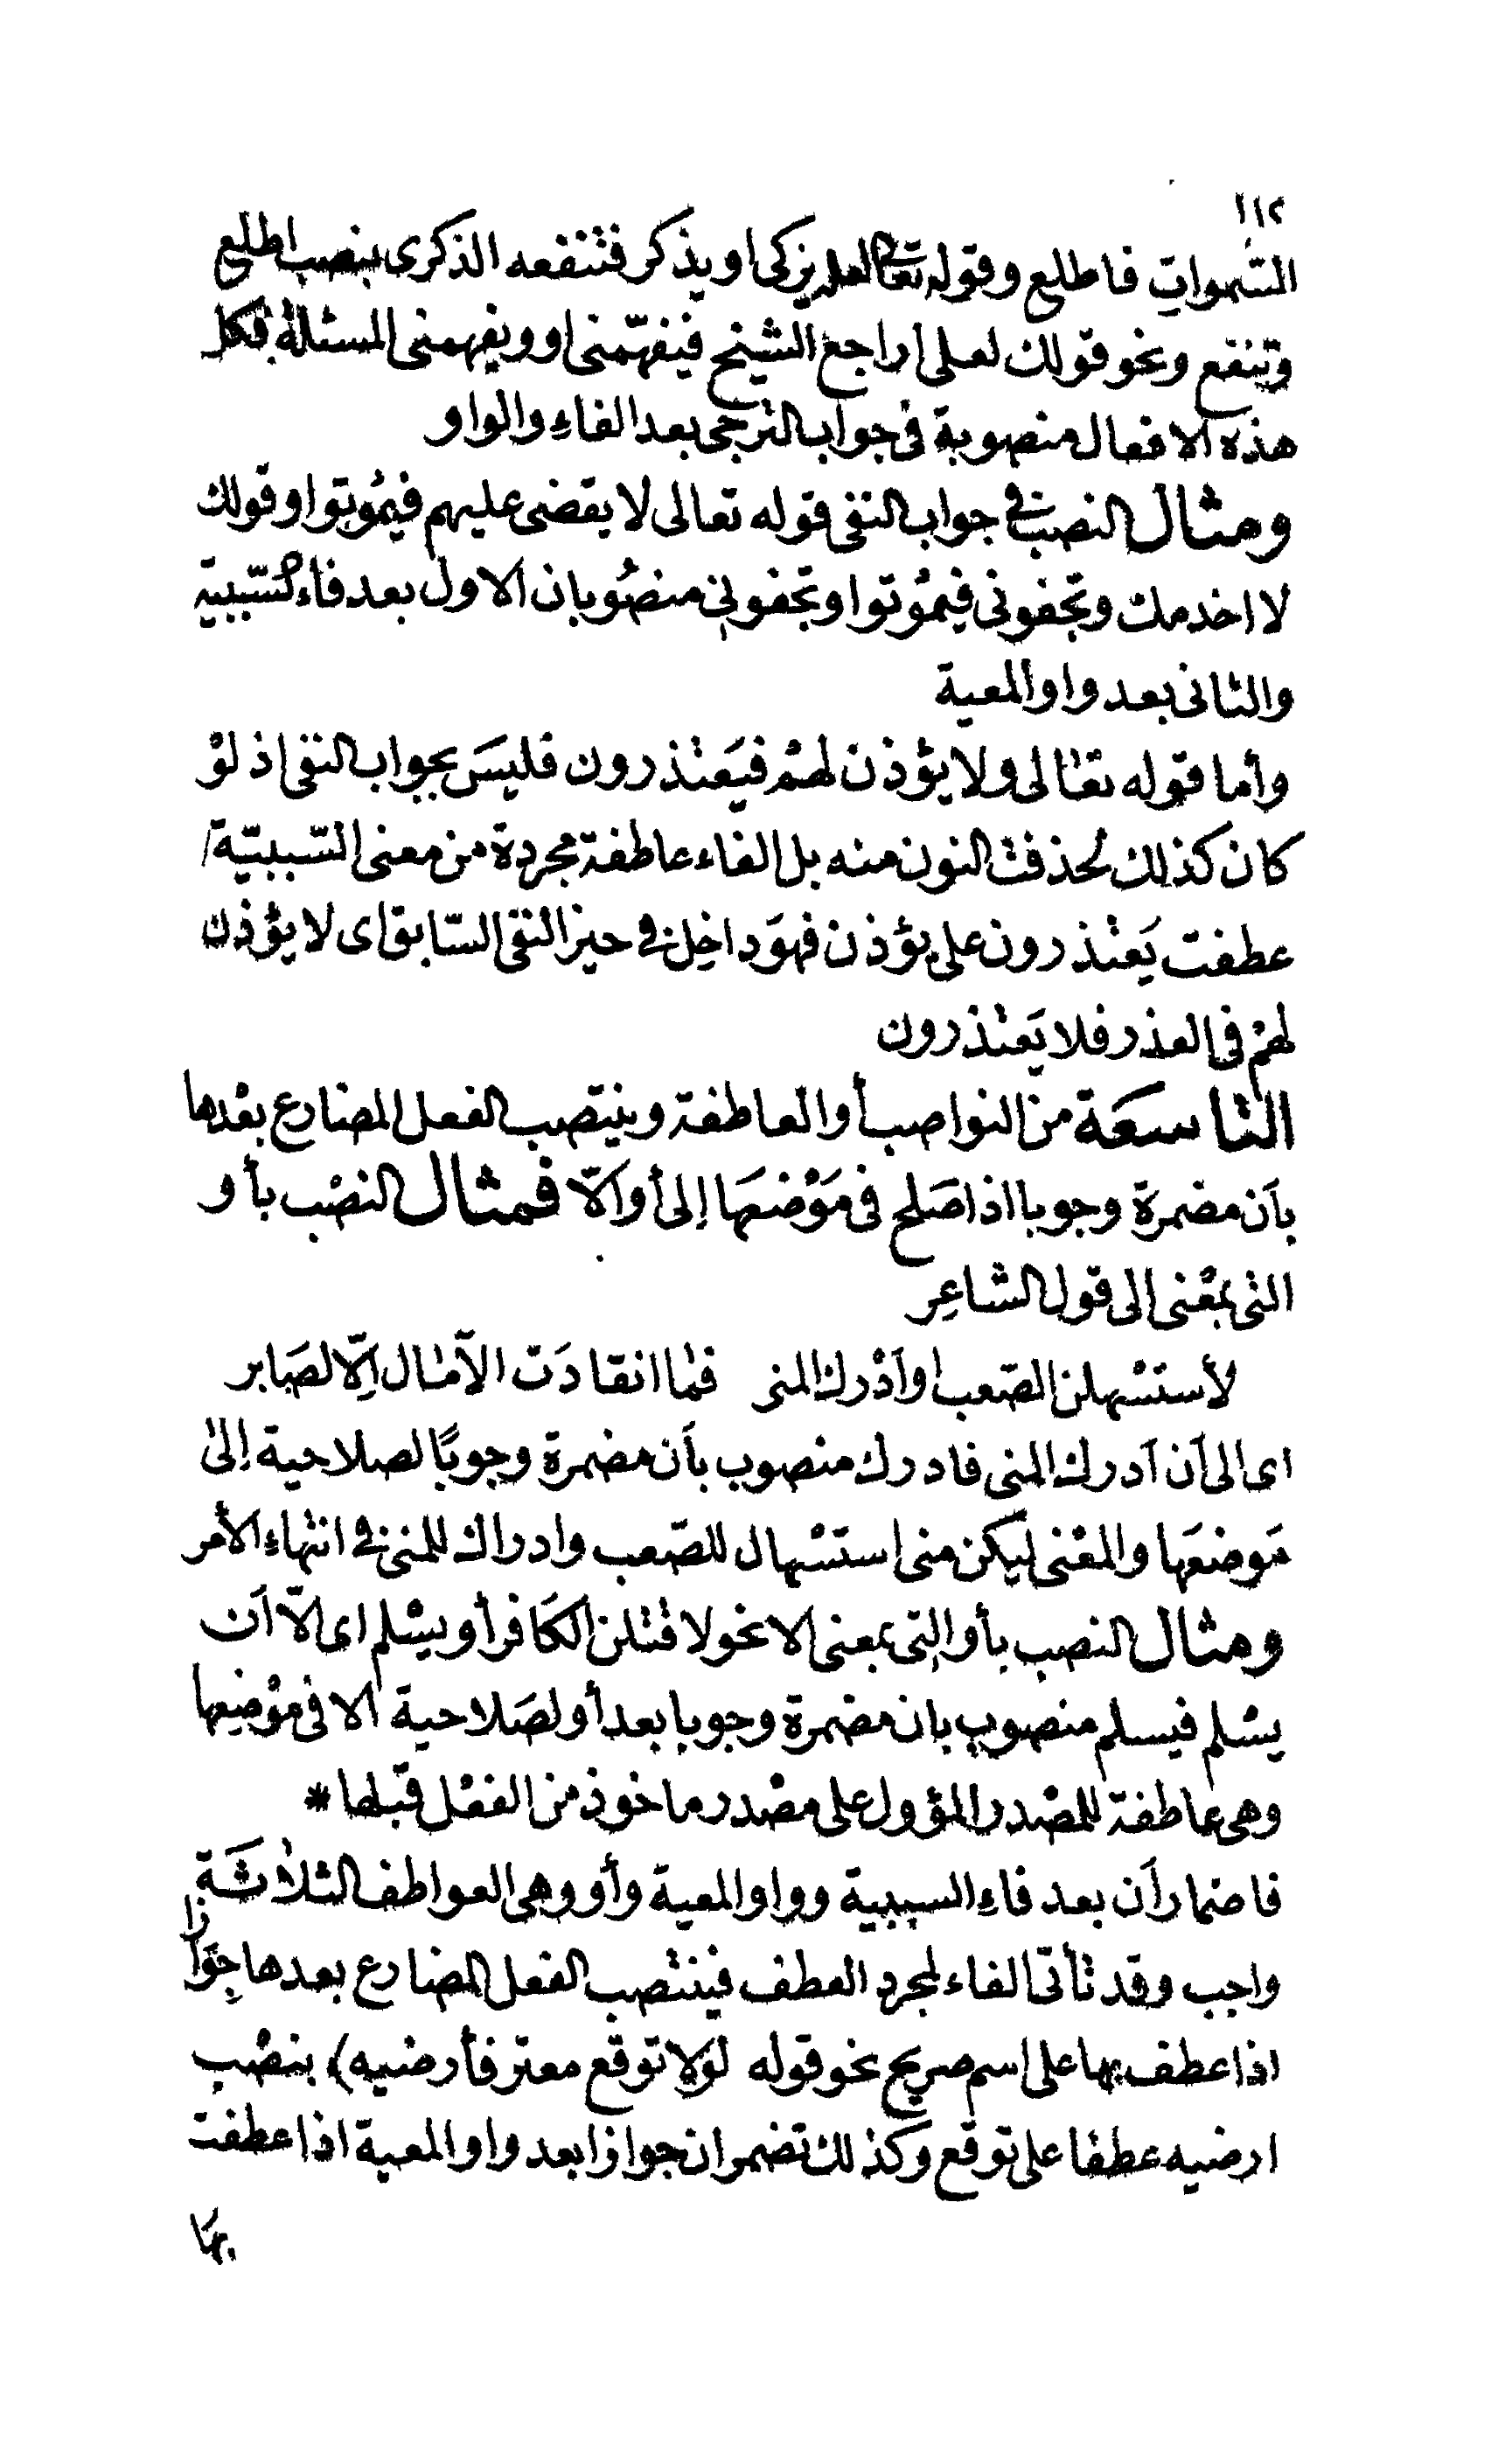 ١١٢
السَّمواتِ فاطلع وقوله تعالى لعله يزكى او يذكر فتنفعه الذكرى بنصب اطلع
وتنفع ونحو قولك لعلى اراجع الشيخ فيفهّمنى او ويفهمنى المسئلة فكل
هذه الافعال منصوبة فى جواب الترجى بعد الفاءِ والواو
ومثال النصب فى جواب النفى قوله تعالى لا يقضى عليهم فيمُوتوا وقولك
لا اخدمك وتجفونى فيمُوتوا وتجفونى منصُوبان الاول بعد فاء السّببية
والثانى بعد واو المعية
وأما قوله تعالى ولا يؤذن لهمْ فيَعتْذرون فليسَ بجواب النفى اذ لوْ
كان كذلك لحذفت النون منه بل الفاء عاطفة مجردة من معنى السّببيّة
عطفت يَعتْذرون على يؤذن فهوَ داخِل فى حيز النفى السّابق اى لا يؤذن
لهمْ فى العذر فلا يَعتْذرون
التاسعَة من النواصب أو العاطفة وينتصب الفعل المضارع بعْدها
بأن مضمرة وجوبا اذا صَلح فى موْضعَها إلى أو الّا فمثال النصْب بأو
التى بمعْنى إلى قول الشاعِر
لأستسْهلن الصّعب او أدْرك المنى فما انقادَت الآمال إلّا لصَابر
اى الى أن أدرك المنى فادرك منصوب بأن مضمرة وجوبًا لصلاحية إلى
مَوضعَها والمعْنى ليكن منى استسْهال للصّعب وادراك للمنى فى انتهاءِ الأمر
ومثال النصب بأو التى بمعنى الا نحو لاقتلن الكَافر أو يسْلم اى الّا أن
يسْلم فيسلم منصوب بان مضمرة وجوبا بعد أو لصَلاحية الا فى موْضِعها
وهى عاطفة للمصْدر المؤول على مصْدر ماخوذ من الفعْل قبْلها *
فاضمار أن بعد فاءِ السببية وواو المعية وأو وهى العواطف الثلاثَة
واجب وقد تأتى الفاء لمجرد العطف فينتْصب الفعل المضارع بعدها جِوَازا
اذا عطف بها على اسم صريح نحو قوله لوْلا توقع معتر فأرضيه) بنصْب
ارضيه عطفا على توقع وكذلك تضمر ان جوازا بعد واو المعية اذا عطفت
بهَا